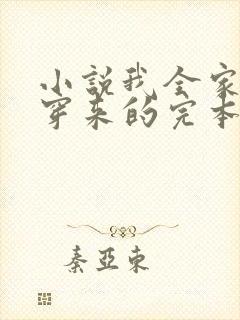 小說我全家
穿来的完本
秦亚東